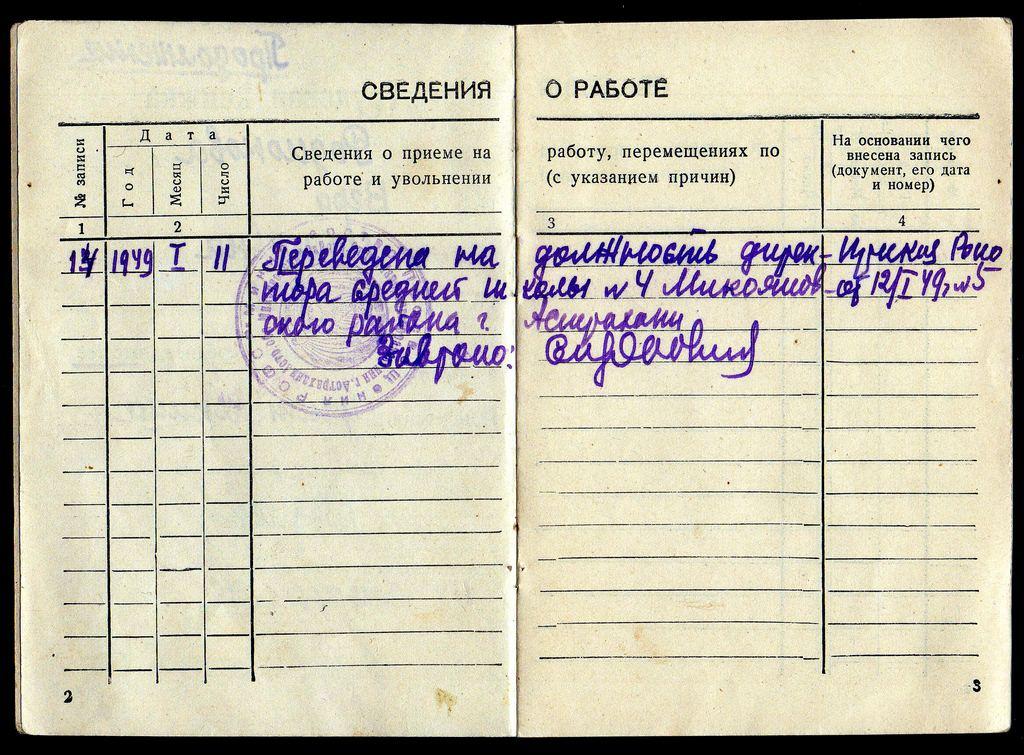 СВЕДЕНИЯ О РАБОТЕ
№ записи
Дата
Год
Месяц
Число
Сведения о приеме на работу, перемещениях по
работе и увольнении (с указанием причин)
На основании чего
внесена запись
(документ, его дата
и номер)
1 2 3 4
1949 I 11 Переведена на должность дирек-
тора средней школы №4 Микоянов-
ского района г. Астрахани
Завроно:
Приказ Роно
от 12/I 49г. №5
2 3